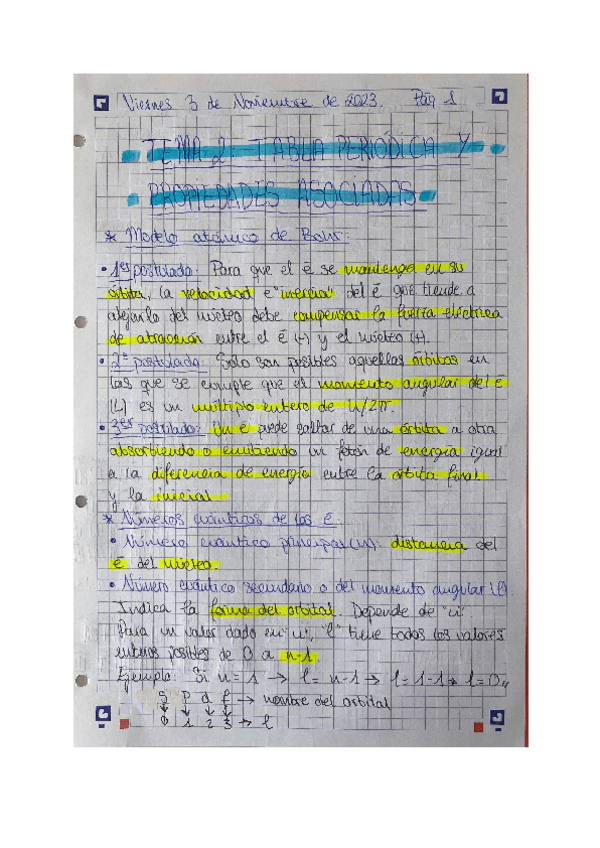 Viernes 3 de Noviembre de 2023. Pág 1
TEMA 2 - TABLA PERIÓDICA Y
PROPIEDADES ASOCIADAS
* Modelo atómico de Bohr:
• 1er postulado: Para que el é se mantenga en su
órbita, la velocidad e "inercia" del é que tiende a
alejarlo del núcleo debe compensar la fuerza eléctrica
de atracción entre el é (-) y el núcleo (+).
• 2º postulado: Solo son posibles aquellas órbitas en
las que se cumple que el momento angular del é
(L) es un múltiplo entero de h/2π.
• 3er postulado: Un é puede saltar de una órbita a otra
absorbiendo o emitiendo un fotón de energía igual
a la diferencia de energía entre la órbita final
y la inicial
* Números cuánticos de los é.
• Número cuántico principal (n): distancia del
é del núcleo
• Número cuántico secundario o del momento angular (l)
Indica la forma del orbital. Depende de "n".
Para un valor dado en "n", "l" tiene todos los valores
enteros posibles de 0 a n-1.
Ejemplo: Si n=1 → l= n-1 → l=1-1 → l=0,,
S P d f → nombre del orbital
↓ ↓ ↓ ↓
0 1 2 3 → l